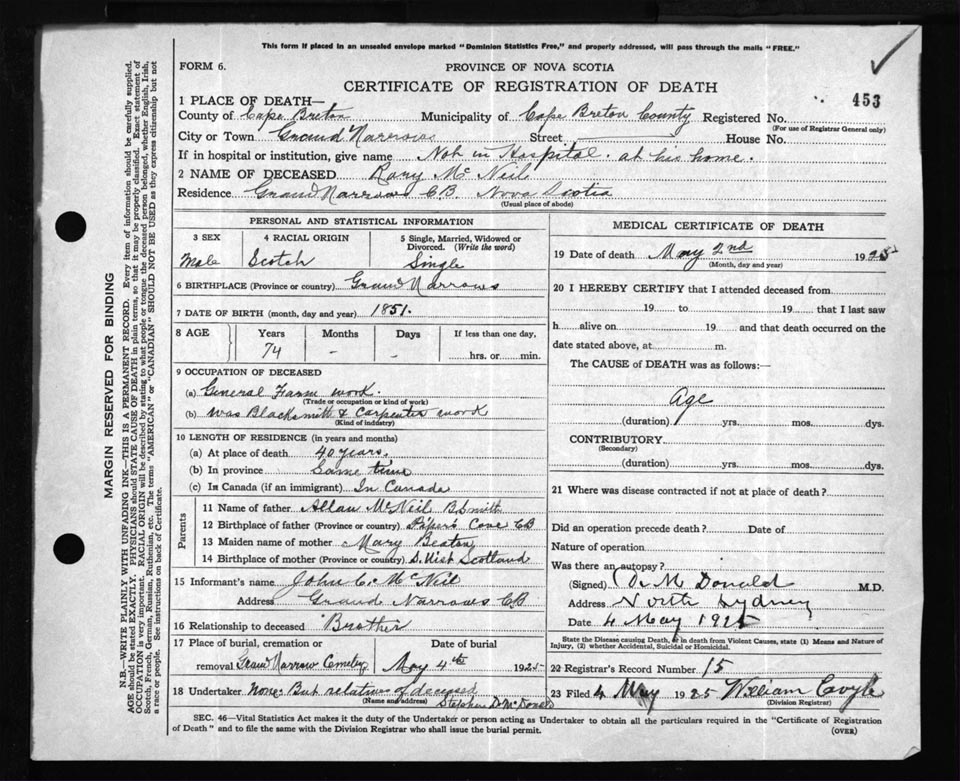 This form if placed in an unsealed envelope marked "Dominion Statistics Free," and properly addressed, will pass through the mails "FREE."
FORM 6.
PROVINCE OF NOVA SCOTIA
CERTIFICATE OF REGISTRATION OF DEATH
453
1 PLACE OF DEATH—
County of Cape Breton Municipality of Cape Breton County Registered No.
(For use of Registrar General only)
City or Town Grand Narrows Street House No.
If in hospital or institution, give name Not in Hospital. at his home.
2 NAME OF DECEASED Rory Mc Neil
Residence Grand Narrows C B. Nova Scotia
(Usual place of abode)
PERSONAL AND STATISTICAL INFORMATION
3 SEX 4 RACIAL ORIGIN 5 Single, Married, Widowed or Divorced. (Write the word)
Male Scotch Single
6 BIRTHPLACE (Province or country) Grand Narrows
7 DATE OF BIRTH (month, day and year) 1851.
8 AGE Years Months Days If less than one day,
74 - - hrs. or min.
9 OCCUPATION OF DECEASED
(a) General Farm work.
(Trade or occupation or kind of work)
(b) was Blacksmith & Carpenter work
(Kind of inddstry)
10 LENGTH OF RESIDENCE (in years and months)
(a) At place of death 40 years.
(b) In province Same time
(c) In Canada (if an immigrant) In Canada
Parents
11 Name of father Allan McNeil B Smith
12 Birthplace of father (Province or country) Pipers Cove CB
13 Maiden name of mother Mary Beaton
14 Birthplace of mother (Province or country) S. Uist Scotland
15 Informant's name John C. McNeil
Address Grand Narrows CB
16 Relationship to deceased Brother
17 Place of burial, cremation or Date of burial
removal Grand Narrow Cemetery May 4th 1925
18 Undertaker None But relatives of deceased
(Name and address) Stephen D McDonald
MEDICAL CERTIFICATE OF DEATH
19 Date of death May 2nd 1925
(Month, day and year)
20 I HEREBY CERTIFY that I attended deceased from
19 to 19 that I last saw
h alive on 19 and that death occurred on the
date stated above, at m.
The CAUSE OF DEATH was as follows:—
Age
(duration) yrs. mos. dys.
CONTRIBUTORY
(Secondary)
(duration) yrs. mos. dys.
21 Where was disease contracted if not at place of death?
Did an operation precede death? Date of
Nature of operation
Was there an autopsy?
(Signed) D. McDonald M.D.
Address North Sydney
Date 4 May 1925
State the Disease causing Death, in death from Violent Causes, state (1) Means and Nature of Injury, (2) whether Accidental, Suicidal or Homicidal.
22 Registrar's Record Number 15
23 Filed 4 May 1925 William Coyle
(Division Registrar)
SEC. 46—Vital Statistics Act makes it the duty of the Undertaker or person acting as Undertaker to obtain all the particulars required in the "Certificate of Registration
of Death" and to file the same with the Division Registrar who shall issue the burial permit.
(OVER)
MARGIN RESERVED FOR BINDING
N.B.—WRITE PLAINLY WITH UNFADING INK—THIS IS A PERMANENT RECORD. Every item of information should be carefully supplied.
AGE should be stated EXACTLY. PHYSICIANS should STATE CAUSE OF DEATH in plain terms, so that it may be properly classified. Exact statement of
OCCUPATION is very important. RACIAL ORIGIN will be described by stating to what people or tongue the deceased person belonged, whether English, Irish,
Scotch, French, German, Russian, Ruthenian, etc. The terms "AMERICAN" or "CANADIAN" SHOULD NOT BE USED as they express citizenship but not
a race or people. See instructions on back of Certificate.